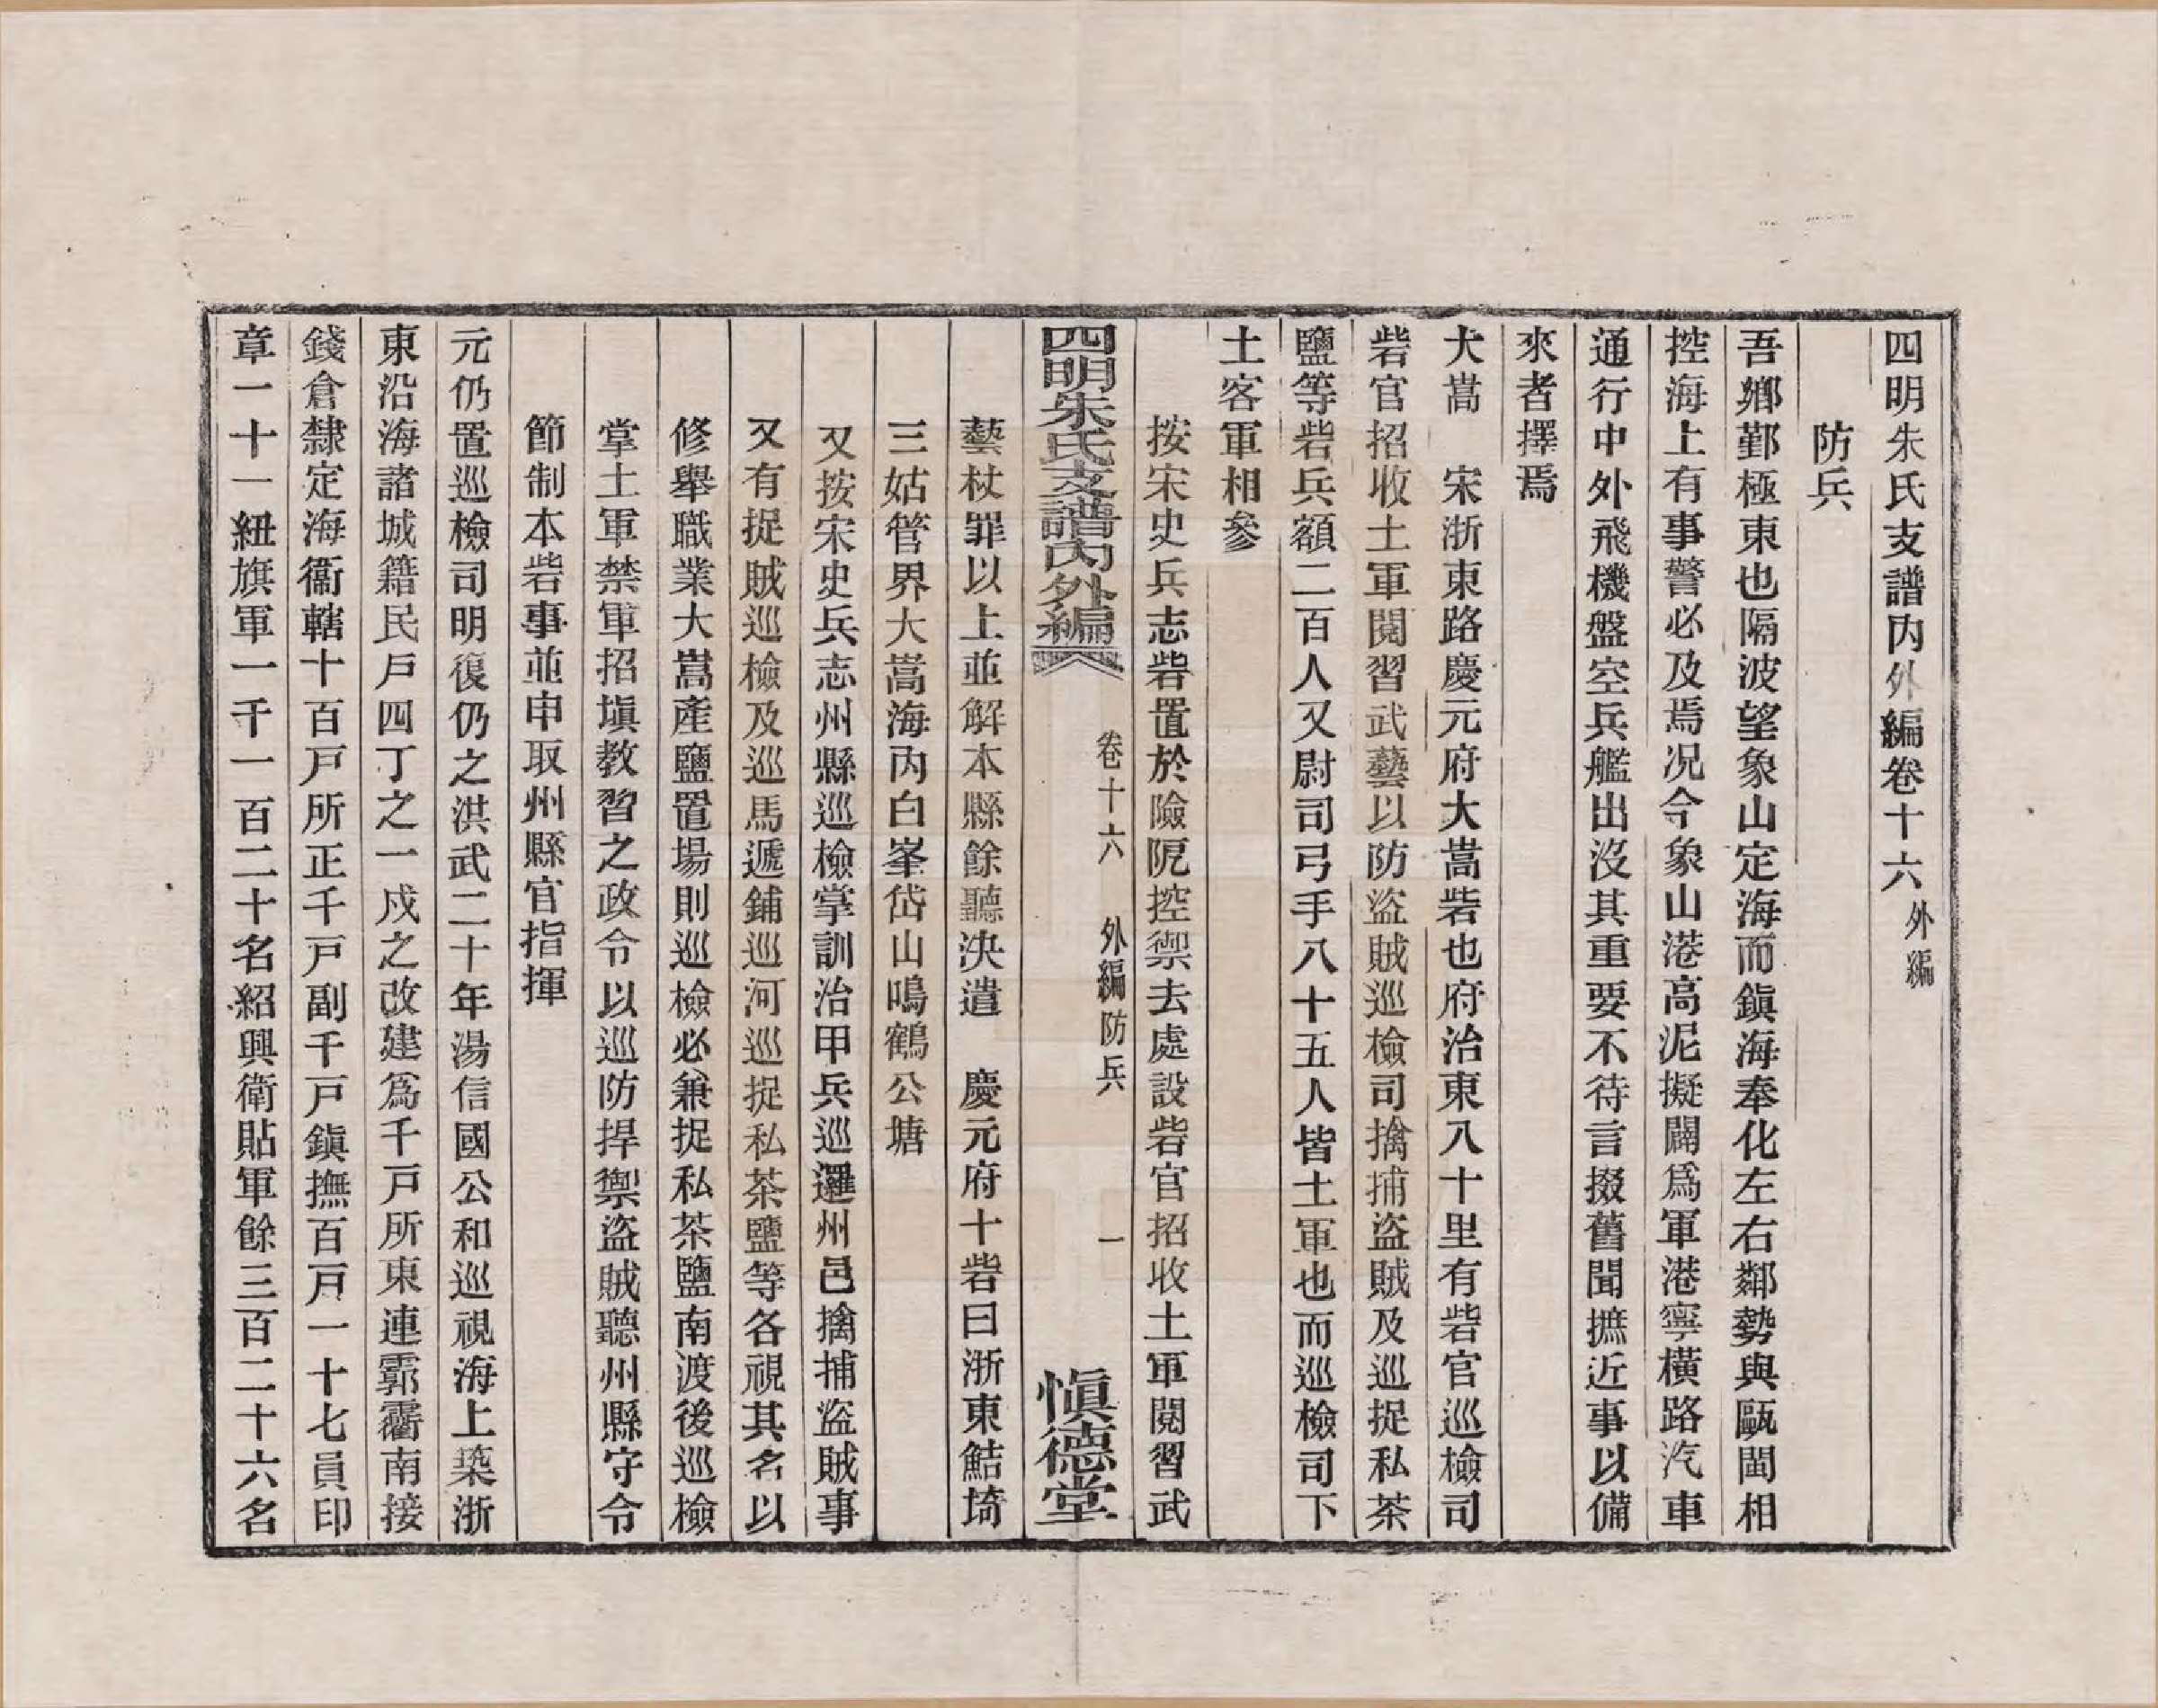 四明朱氏支譜內外編卷十六外編
防兵
吾鄉鄞極東也隔波望象山定海而鎭海奉化左右鄰勢與甌閩相
控海上有事警必及焉况今象山港高泥擬闢爲軍港寧橫路汽車
通行中外飛機盤空兵艦出沒其重要不待言掇舊聞摭近事以備
來者擇焉
大嵩　宋浙東路慶元府大嵩砦也府治東八十里有砦官巡檢司
砦官招收土軍閱習武藝以防盜賊巡檢司擒捕盜賊及巡捉私茶
鹽等砦兵額二百人又尉司弓手八十五人皆土軍也而巡檢司下
土客軍相參
按宋史兵志砦置於險阨控禦去處設砦官招收土軍閱習武
四明朱氏支譜內外編
卷十六　外編防兵　一
愼德堂
藝杖罪以上並解本縣餘聽決遣　慶元府十砦曰浙東鮚埼
三姑管界大嵩海內白峯岱山鳴鶴公塘
又按宋史兵志州縣巡檢掌訓治甲兵巡邏州邑擒捕盜賊事
又有捉賊巡檢及巡馬遞鋪巡河巡捉私茶鹽等各視其名以
修舉職業大嵩產鹽置場則巡檢必兼捉私茶鹽南渡後巡檢
掌土軍禁軍招塡教習之政令以巡防捍禦盜賊聽州縣守令
節制本砦事並申取州縣官指揮
元仍置巡檢司明復仍之洪武二十年湯信國公和巡視海上築浙
東沿海諸城籍民戶四丁之一戍之改建爲千戶所東連霩䨇南接
錢倉隸定海衞轄十百戶所正千戶副千戶鎭撫百戶一十七員印
章一十一紐旗軍一千一百二十名紹興衛貼軍餘三百二十六名